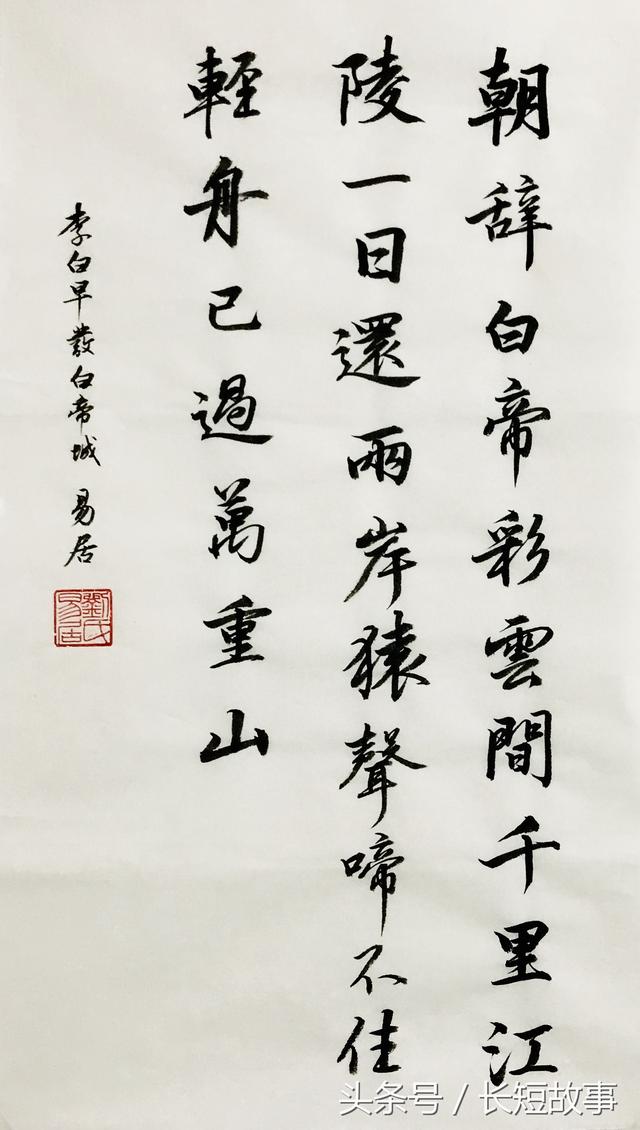 朝辞白帝彩雲間千里江
陵一日還兩岸猿聲啼不住
輕舟已過萬重山
李白早發白帝城 易居
劉氏
易居
头条号 / 长短故事